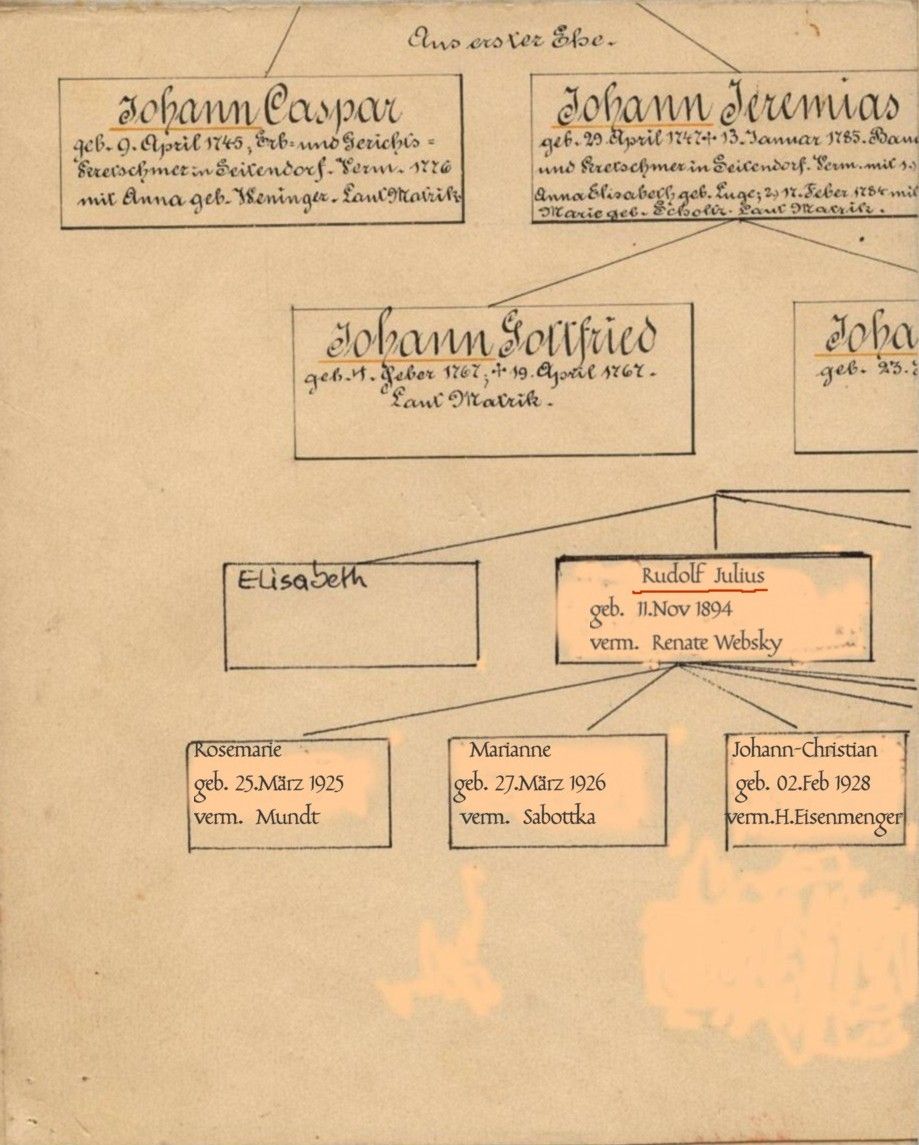 Aus erster Ehe.
Johann Caspar
geb. 9. April 1745, Erb- und Gerichts=
Kretschmer in Seitendorf. Verm. 1776
mit Anna geb. Weninger. Laut Matrik
Johann Jeremias
geb. 29. April 1747 + 13. Januar 1785. Bau
und Kretschmer in Seitendorf. Verm. mit 1.)
Anna Elisabeth geb. Luge; 2) 17. Feber 1784 mit
Marie geb. Scholtz. Laut Matrik.
Johann Gottfried
geb. 4. Feber 1767; + 19. April 1767.
Laut Matrik.
Joha
geb. 23.
Elisabeth
Rudolf Julius
geb. 11.Nov 1894
verm. Renate Websky
Rosemarie
geb. 25.März 1925
verm. Mundt
Marianne
geb. 27.März 1926
verm. Sabottka
Johann-Christian
geb. 02.Feb 1928
verm.H.Eisenmenger